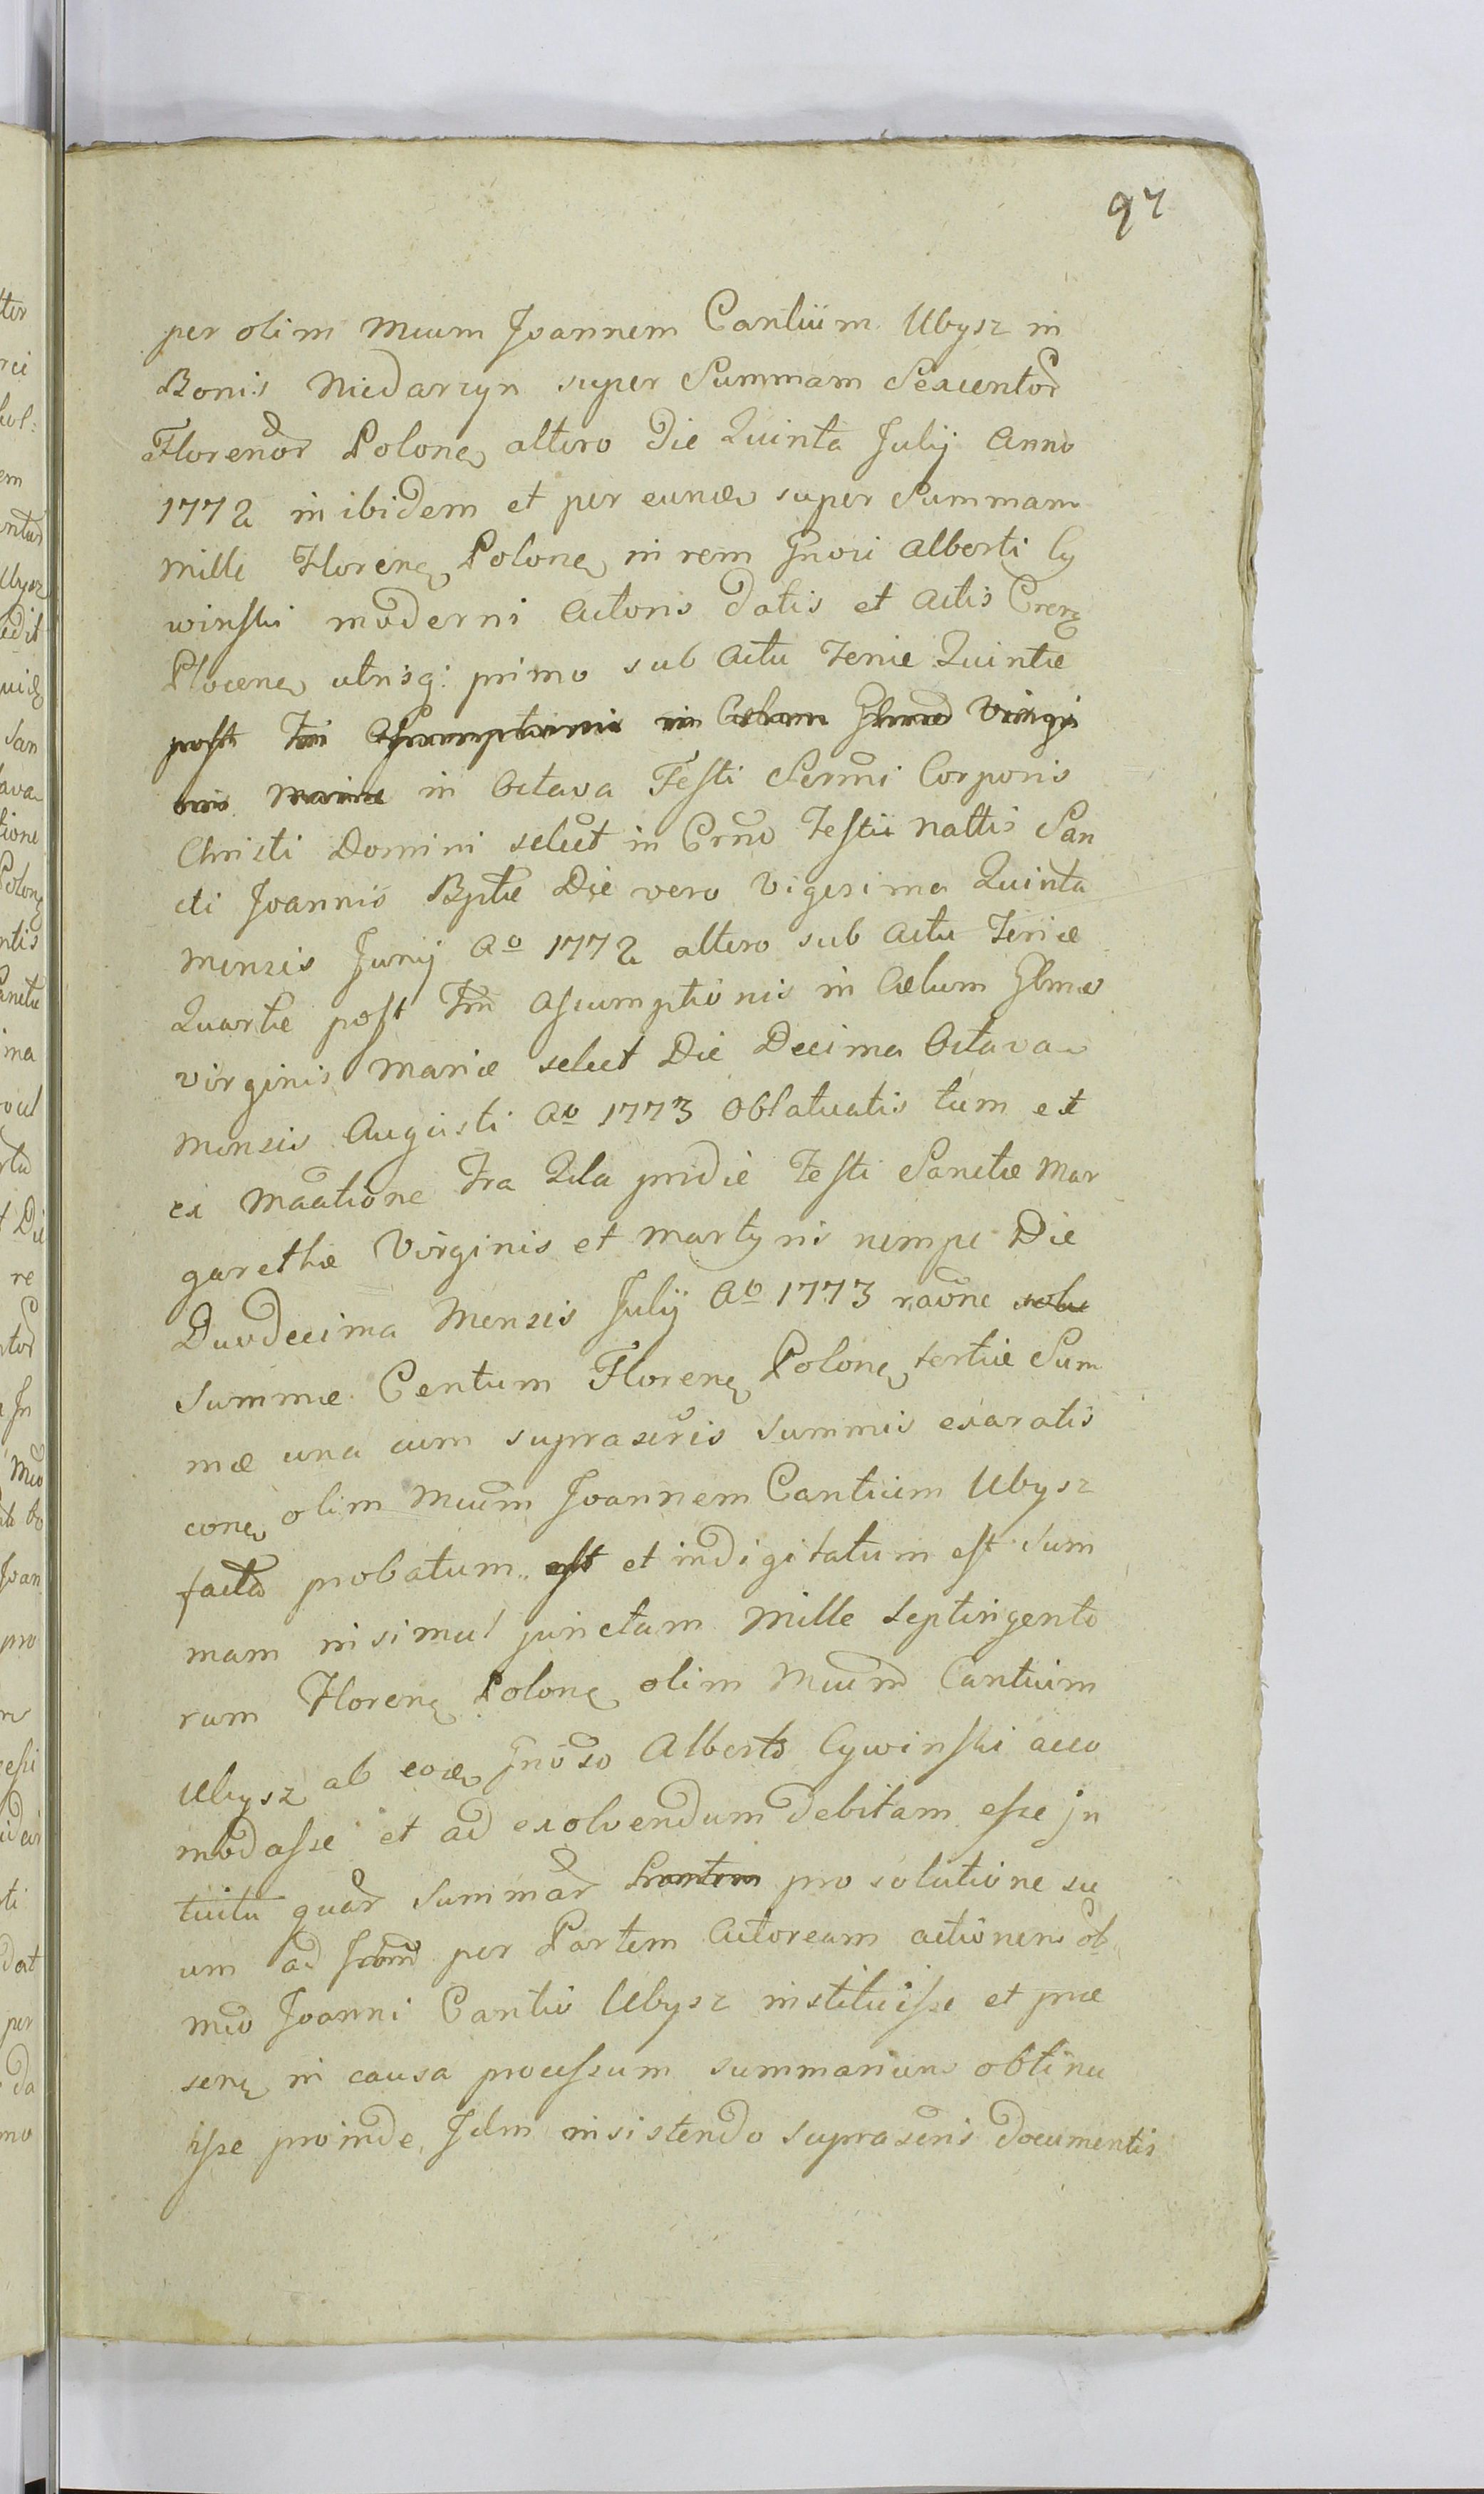 97
per olim Mcum Joannem Cantium Ubysz in
Bonis Niedarzyn super Summam Sexcentor̄
Florenor̄ Polonę altero Die Quinta Julij Anno
1772 in ibidem et per eund super Summam
Mille Florenę Polonę in rem Gnosi Alberti Cy
winski moderni Actoris datis et Actis Crerę
Plocenę utrisq: primo sub Actu Feriæ Quintæ
post Fm Assumptionis in Cælum Glmæ Virgi
nis Mariæ in Octava Festi Sermi Corporis
Christi Domini select in Crno Festi Nattis San
cti Joannis Bptæ Die vero Vigesima Quinta
Mensis Junij Ao 1772 altero sub Actu Feriæ
Quartæ post Fm Assumptionis in Cælum Glmæ
Virginis Mariæ select Die Decima Octava
Mensis Augusti Ao 1773 Oblatuatis tum et
ex Maatione Fra Qda pridie Festi Sanctæ Mar
garethæ Virginis et Martyris nempe Die
Duodecima Mensis Julij Ao 1773 raone solu
Summæ Centum Florenę Polonę tertiæ Sum
mæ una cum suprascris Summis exaratis
conę olim Mcum Joannem Cantium Ubysz
facta probatum est et indigitatum est Sum
mam insimul junctam Mille Septingento
rum Florenę Polonę olim Mcum Cantium
Ubysz ab eod Gnoso Alberto Cywinski acco
modasse et ad exolvendum debitam esse in
tuitu quar̄ Summar̄ pro solutione su
um ad per Partem Actoream actionem ol
Mco Joanni Cantio Ubysz instituisse et præ
senę in causa processum summarium obtinu
isse proinde Idm insistendo suprascris documentis